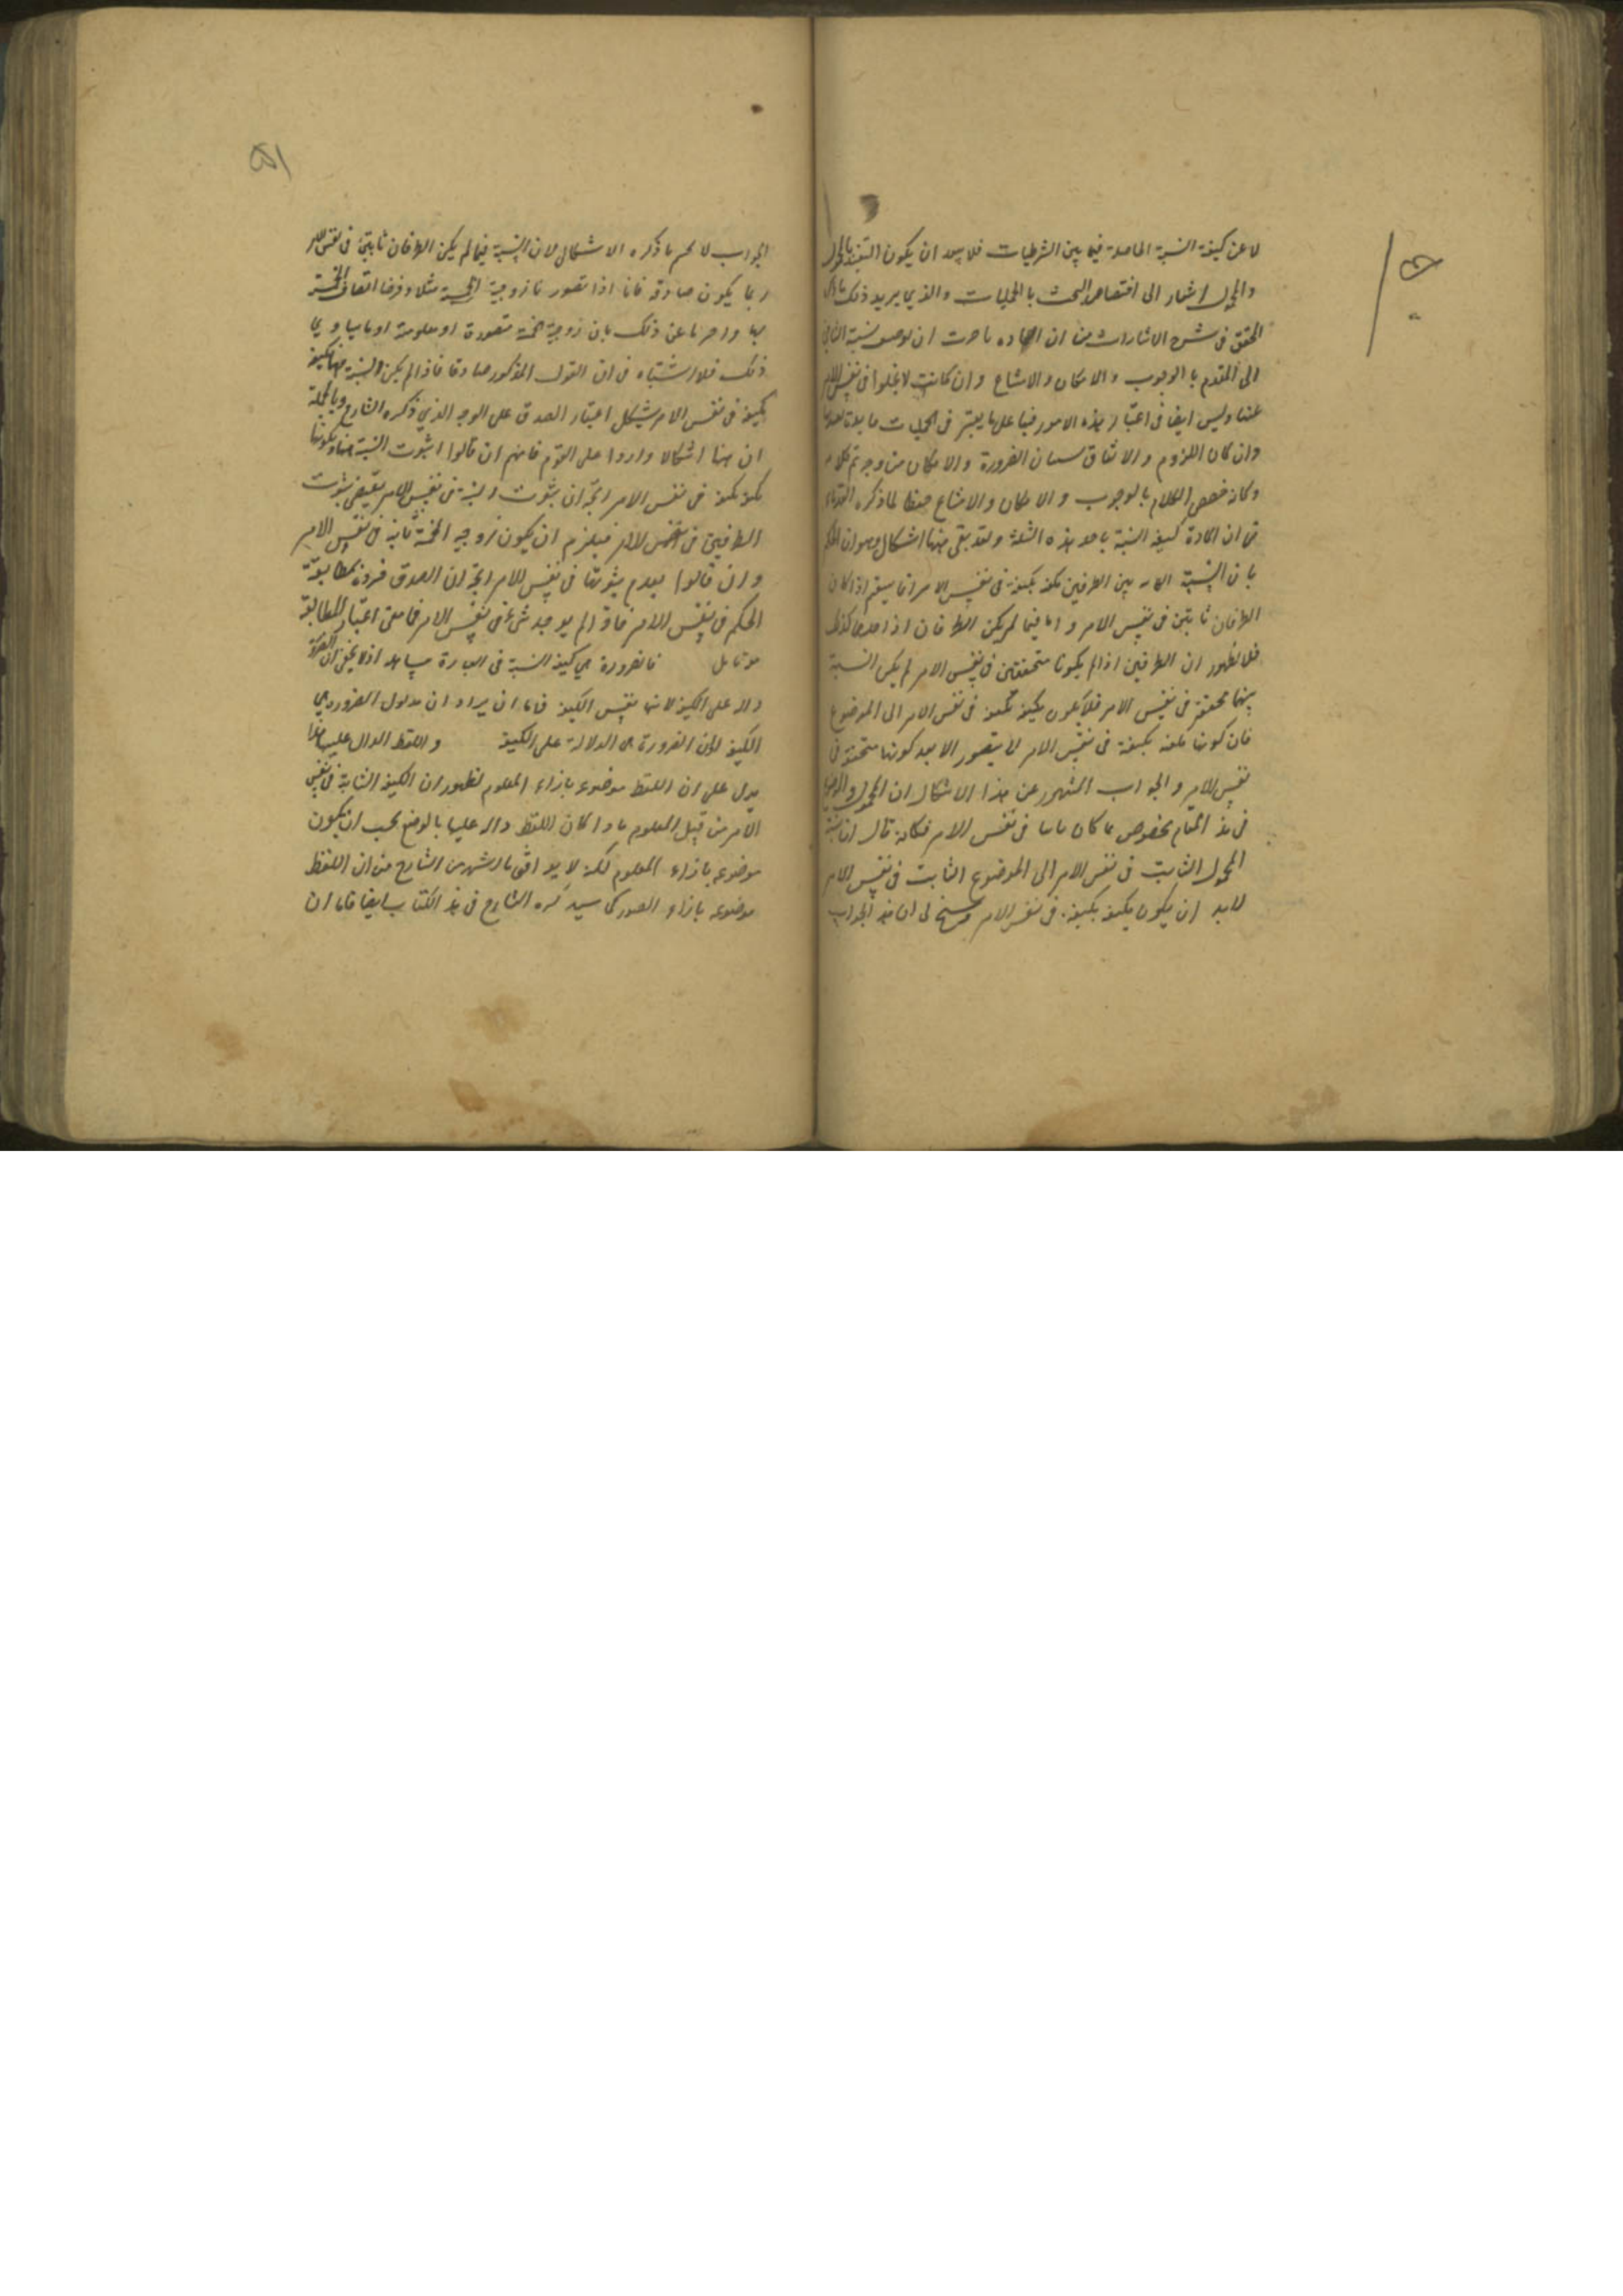 لا عن كيفية النسبة الحاصلة فيما بين الشرطيات فلا يبعد ان يكون التقييد بالموضوع
والمحمول اشارا الى اختصاص البحث بالحمليات والذي يريد ذلك ما ذكره
المحقق فى شرح الاشارات من ان العادة ما جرت ان توصف نسبة التالى
الى المقدم بالوجوب والامكان والامتناع وان كانت لا يخلوا فى نفس الامر
عنها وليس ايضا فى اعتبار هذه الامور فيها على ما يعتبر فى الحمليات فائدة
وان كان اللزوم والاتفاق يشبهان الضرورة والامكان من وجه تم كلامه
وكانه خصص الكلام بالوجوب والامكان والامتناع حفظا لما ذكره القدماء
من ان المادة كيفية النسبة باحد هذه الثلثة ولقد بقى ههنا اشكال وهو ان الحكم
بان النسبة بين الطرفين مكيفة بكيفية فى نفس الامر انما يستقيم اذا كان
الطرفان ثابتين فى نفس الامر واما فيما لم يكن الطرفان او احدهما كذلك
فلا لظهور ان الطرفين اذا لم يكونا متحققين فى نفس الامر لم يكن النسبة
بينهما متحققة فى نفس الامر فلا يكون مكيفة بكيفية فى نفس الامر الى الموضوع
فان كونها مكيفة بكيفية فى نفس الامر لا يتصور الا بعد كونها متحققة فى
نفس الامر والجواب المشهور عن هذا الاشكال ان المحمول والموضوع
فى هذا المقام مخصوص بما كان ثابتا فى نفس الامر فكانه قال ان نسبة
المحمول الثابت فى نفس الامر الى الموضوع الثابت فى نفس الامر
لابد ان يكون مكيفة بكيفية فى نفس الامر وسنح لى ان هذا الجواب
الجواب لا يحسم ما ذكره الاشكال لان النسبة فيما لم يكن الطرفان ثابتين فى نفس الامر
ربما يكون صادقة فانا اذا تصورنا زوجية الخمسة مثلا وفرضنا اتصاف الخمسة
بها واخبرنا عن ذلك بان زوجية الخمسة متصورة او معلومة او ما يساوى
ذلك فلا اشتباه فى ان القول المذكور صادقا فاذا لم يكن النسبة ههنا مكيفة
بكيفية فى نفس الامر يشكل اعتبار الصدق على الوجه الذي ذكره الشارح وبالجملة
ان ههنا اشكالا واردا على القوم فانهم ان قالوا بثبوت النسبة ههنا وبكونها
مكيفة بكيفية فى نفس الامر اتجه ان ثبوت النسبة فى نفس الامر يقتضى ثبوت
الطرفين فى نفس الامر فيلزم ان يكون زوجية الخمسة ثابتة فى نفس الامر
وان قالوا بعدم ثبوتها فى نفس الامر اتجه ان الصدق بمطابقة
الحكم فى نفس الامر فاذا لم يوجد شئ فى نفس الامر فما معنى اعتبار المطابقة
فالضرورة هى كيفية النسبة فى العبارة اذ لا يخفى ان الضرورة
دالة على الكيفية لانها نفس الكيفية فاما ان يراد ان مدلول الضرورة هى
الكيفية او ان الضرورة هى الدلالة على الكيفية واللفظ الدال عليها هذا
يدل على ان اللفظ موضوع بازاء المعلوم لظهور ان الكيفية الثابتة فى نفس
الامر من قبيل المعلوم فاذا كان اللفظ دالا عليها بالوضع يجب ان يكون
موضوعه بازاء المعلوم لكنه لا يوافق ما اشتهر من الشارح من ان اللفظ
موضوعه بازاء الصور كما سيذكره الشارح فى هذا الكتاب ايضا فاما ان